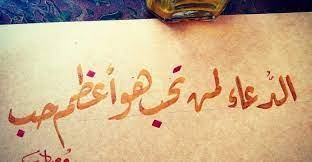 الدُّعاء لمن تحب هو أعظم حب